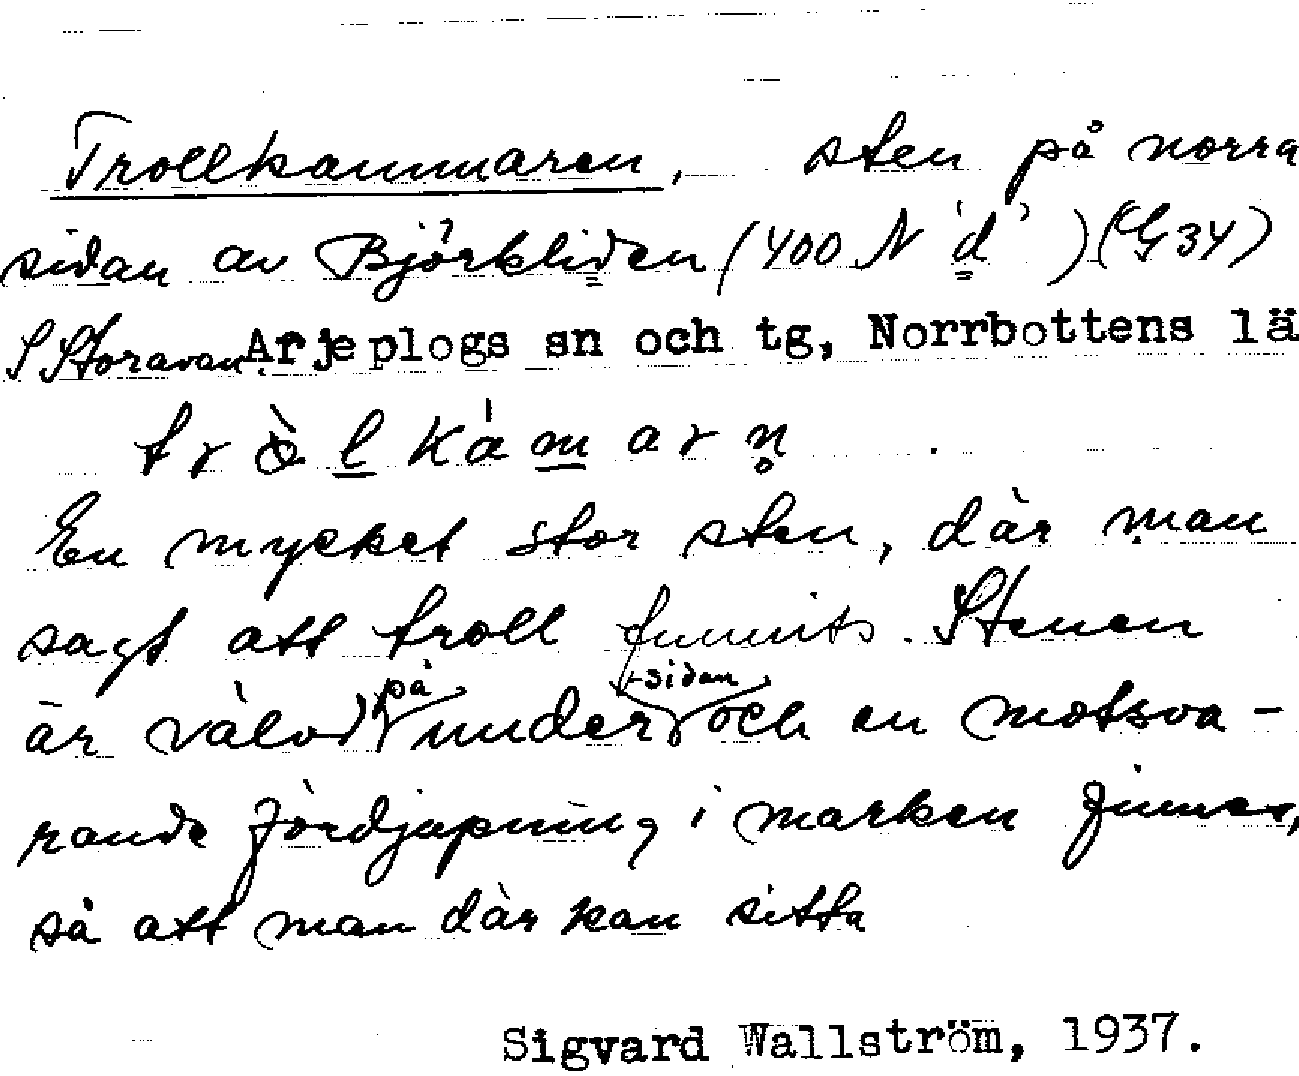 Trollkammaren, sten på norra
sidan av Björkliden (400 N 'd') (G34)
S Storavan Arjeplogs sn och tg, Norrbottens lä
En mycket stor sten, där man
sagt att troll funnits. Stenen
är välvd på under-sidan och en motsva-
rande fördjupning i marken finnes,
så att man där kan sitta
Sigvard Wallström, 1937.